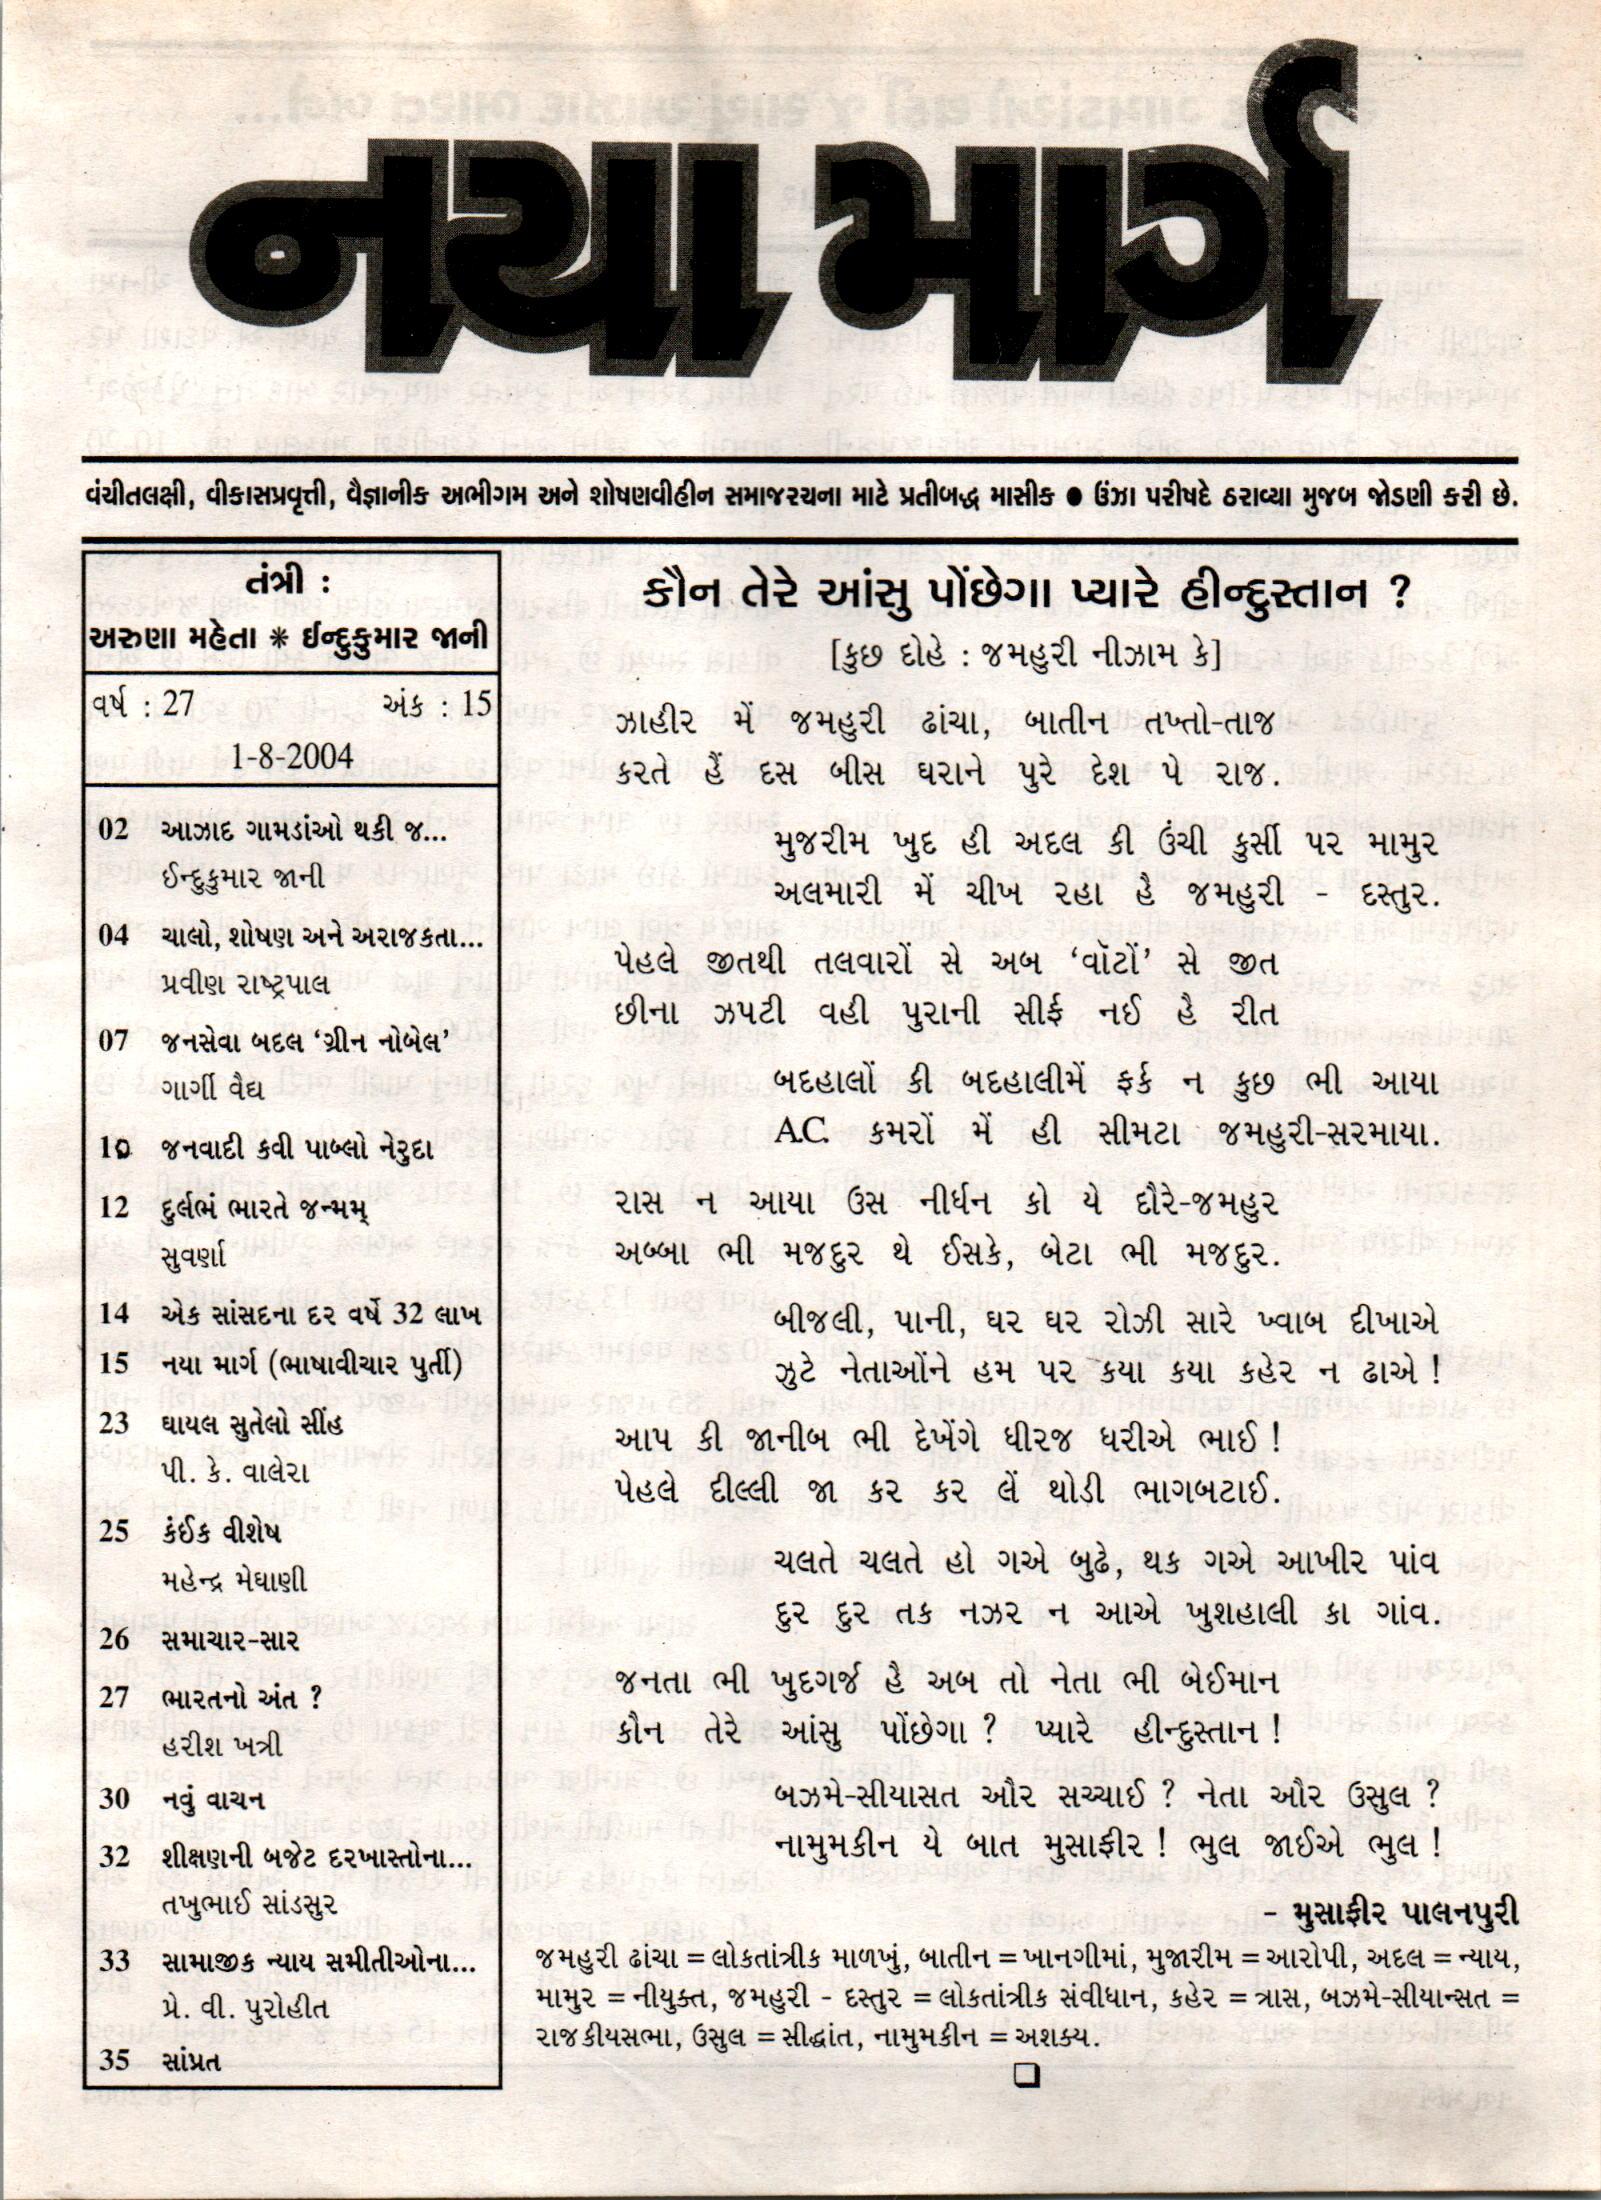 નયા માર્ગ
વંચીતલક્ષી, વીકાસપ્રવૃત્તી, વૈજ્ઞાનીક અભીગમ અને શોષણવીહીન સમાજરચના માટે પ્રતીબદ્ધ માસીક ● ઉંઝા પરીષદે ઠરાવ્યા મુજબ જોડણી કરી છે.
તંત્રી :
અરુણા મહેતા * ઈન્દુકુમાર જાની
વર્ષ : 27 અંક : 15
1-8-2004
02 આઝાદ ગામડાંઓ થકી જ...
ઈન્દુકુમાર જાની
04 ચાલો, શોષણ અને અરાજકતા...
પ્રવીણ રાષ્ટ્રપાલ
07 જનસેવા બદલ ‘ગ્રીન નોબેલ’
ગાર્ગી વૈદ્ય
10 જનવાદી કવી પાબ્લો નેરુદા
12 દુર્લભં ભારતે જન્મમ્
સુવર્ણા
14 એક સાંસદના દર વર્ષે 32 લાખ
15 નયા માર્ગ (ભાષાવીચાર પુર્તી)
23 ઘાયલ સુતેલો સીંહ
પી. કે. વાલેરા
25 કંઈક વીશેષ
મહેન્દ્ર મેઘાણી
26 સમાચાર-સાર
27 ભારતનો અંત ?
હરીશ ખત્રી
30 નવું વાચન
32 શીક્ષણની બજેટ દરખાસ્તોના...
તખુભાઈ સાંડસુર
33 સામાજીક ન્યાય સમીતીઓના...
પ્રે. વી. પુરોહીત
35 સાંપ્રત
કૌન તેરે આંસુ પોંછેગા પ્યારે હીન્દુસ્તાન ?
[કુછ દોહે : જમહુરી નીઝામ કે]
ઝાહીર મેં જમહુરી ઢાંચા, બાતીન તખ્તો-તાજ
કરતે હૈં દસ બીસ ઘરાને પુરે દેશ પે રાજ.
મુજરીમ ખુદ હી અદલ કી ઉંચી કુર્સી પર મામુર
અલમારી મેં ચીખ રહા હૈ જમહુરી - દસ્તુર.
પેહલે જીતથી તલવારોં સે અબ ‘વૉટોં’ સે જીત
છીના ઝપટી વહી પુરાની સીર્ફ નઈ હૈ રીત
બદહાલોં કી બદહાલીમેં ફર્ક ન કુછ ભી આયા
A.C. કમરોં મેં હી સીમટા જમહુરી-સરમાયા.
રાસ ન આયા ઉસ નીર્ધન કો યે દૌરે-જમહુર
અબ્બા ભી મજદુર થે ઈસકે, બેટા ભી મજદુર.
બીજલી, પાની, ઘર ઘર રોઝી સારે ખ્વાબ દીખાએ
ઝુટે નેતાઓંને હમ પર કયા કયા કહેર ન ઢાએ !
આપ કી જાનીબ ભી દેખેંગે ધીરજ ધરીએ ભાઈ !
પેહલે દીલ્લી જા કર કર લેં થોડી ભાગબટાઈ.
ચલતે ચલતે હો ગએ બુઢે, થક ગએ આખીર પાંવ
દુર દુર તક નઝર ન આએ ખુશહાલી કા ગાંવ.
જનતા ભી ખુદગર્જ હૈ અબ તો નેતા ભી બેઈમાન
કૌન તેરે આંસુ પોંછેગા ? પ્યારે હીન્દુસ્તાન !
બઝમે-સીયાસત ઔર સચ્ચાઈ ? નેતા ઔર ઉસુલ ?
નામુમકીન યે બાત મુસાફીર ! ભુલ જાઈએ ભુલ !
- મુસાફીર પાલનપુરી
જમહુરી ઢાંચા = લોકતાંત્રીક માળખું, બાતીન = ખાનગીમાં, મુજારીમ = આરોપી, અદલ = ન્યાય,
મામુર = નીયુક્ત, જમહુરી - દસ્તુર = લોકતાંત્રીક સંવીધાન, કહેર = ત્રાસ, બઝમે-સીયાન્સત =
રાજકીયસભા, ઉસુલ = સીદ્ધાંત, નામુમકીન = અશક્ય.